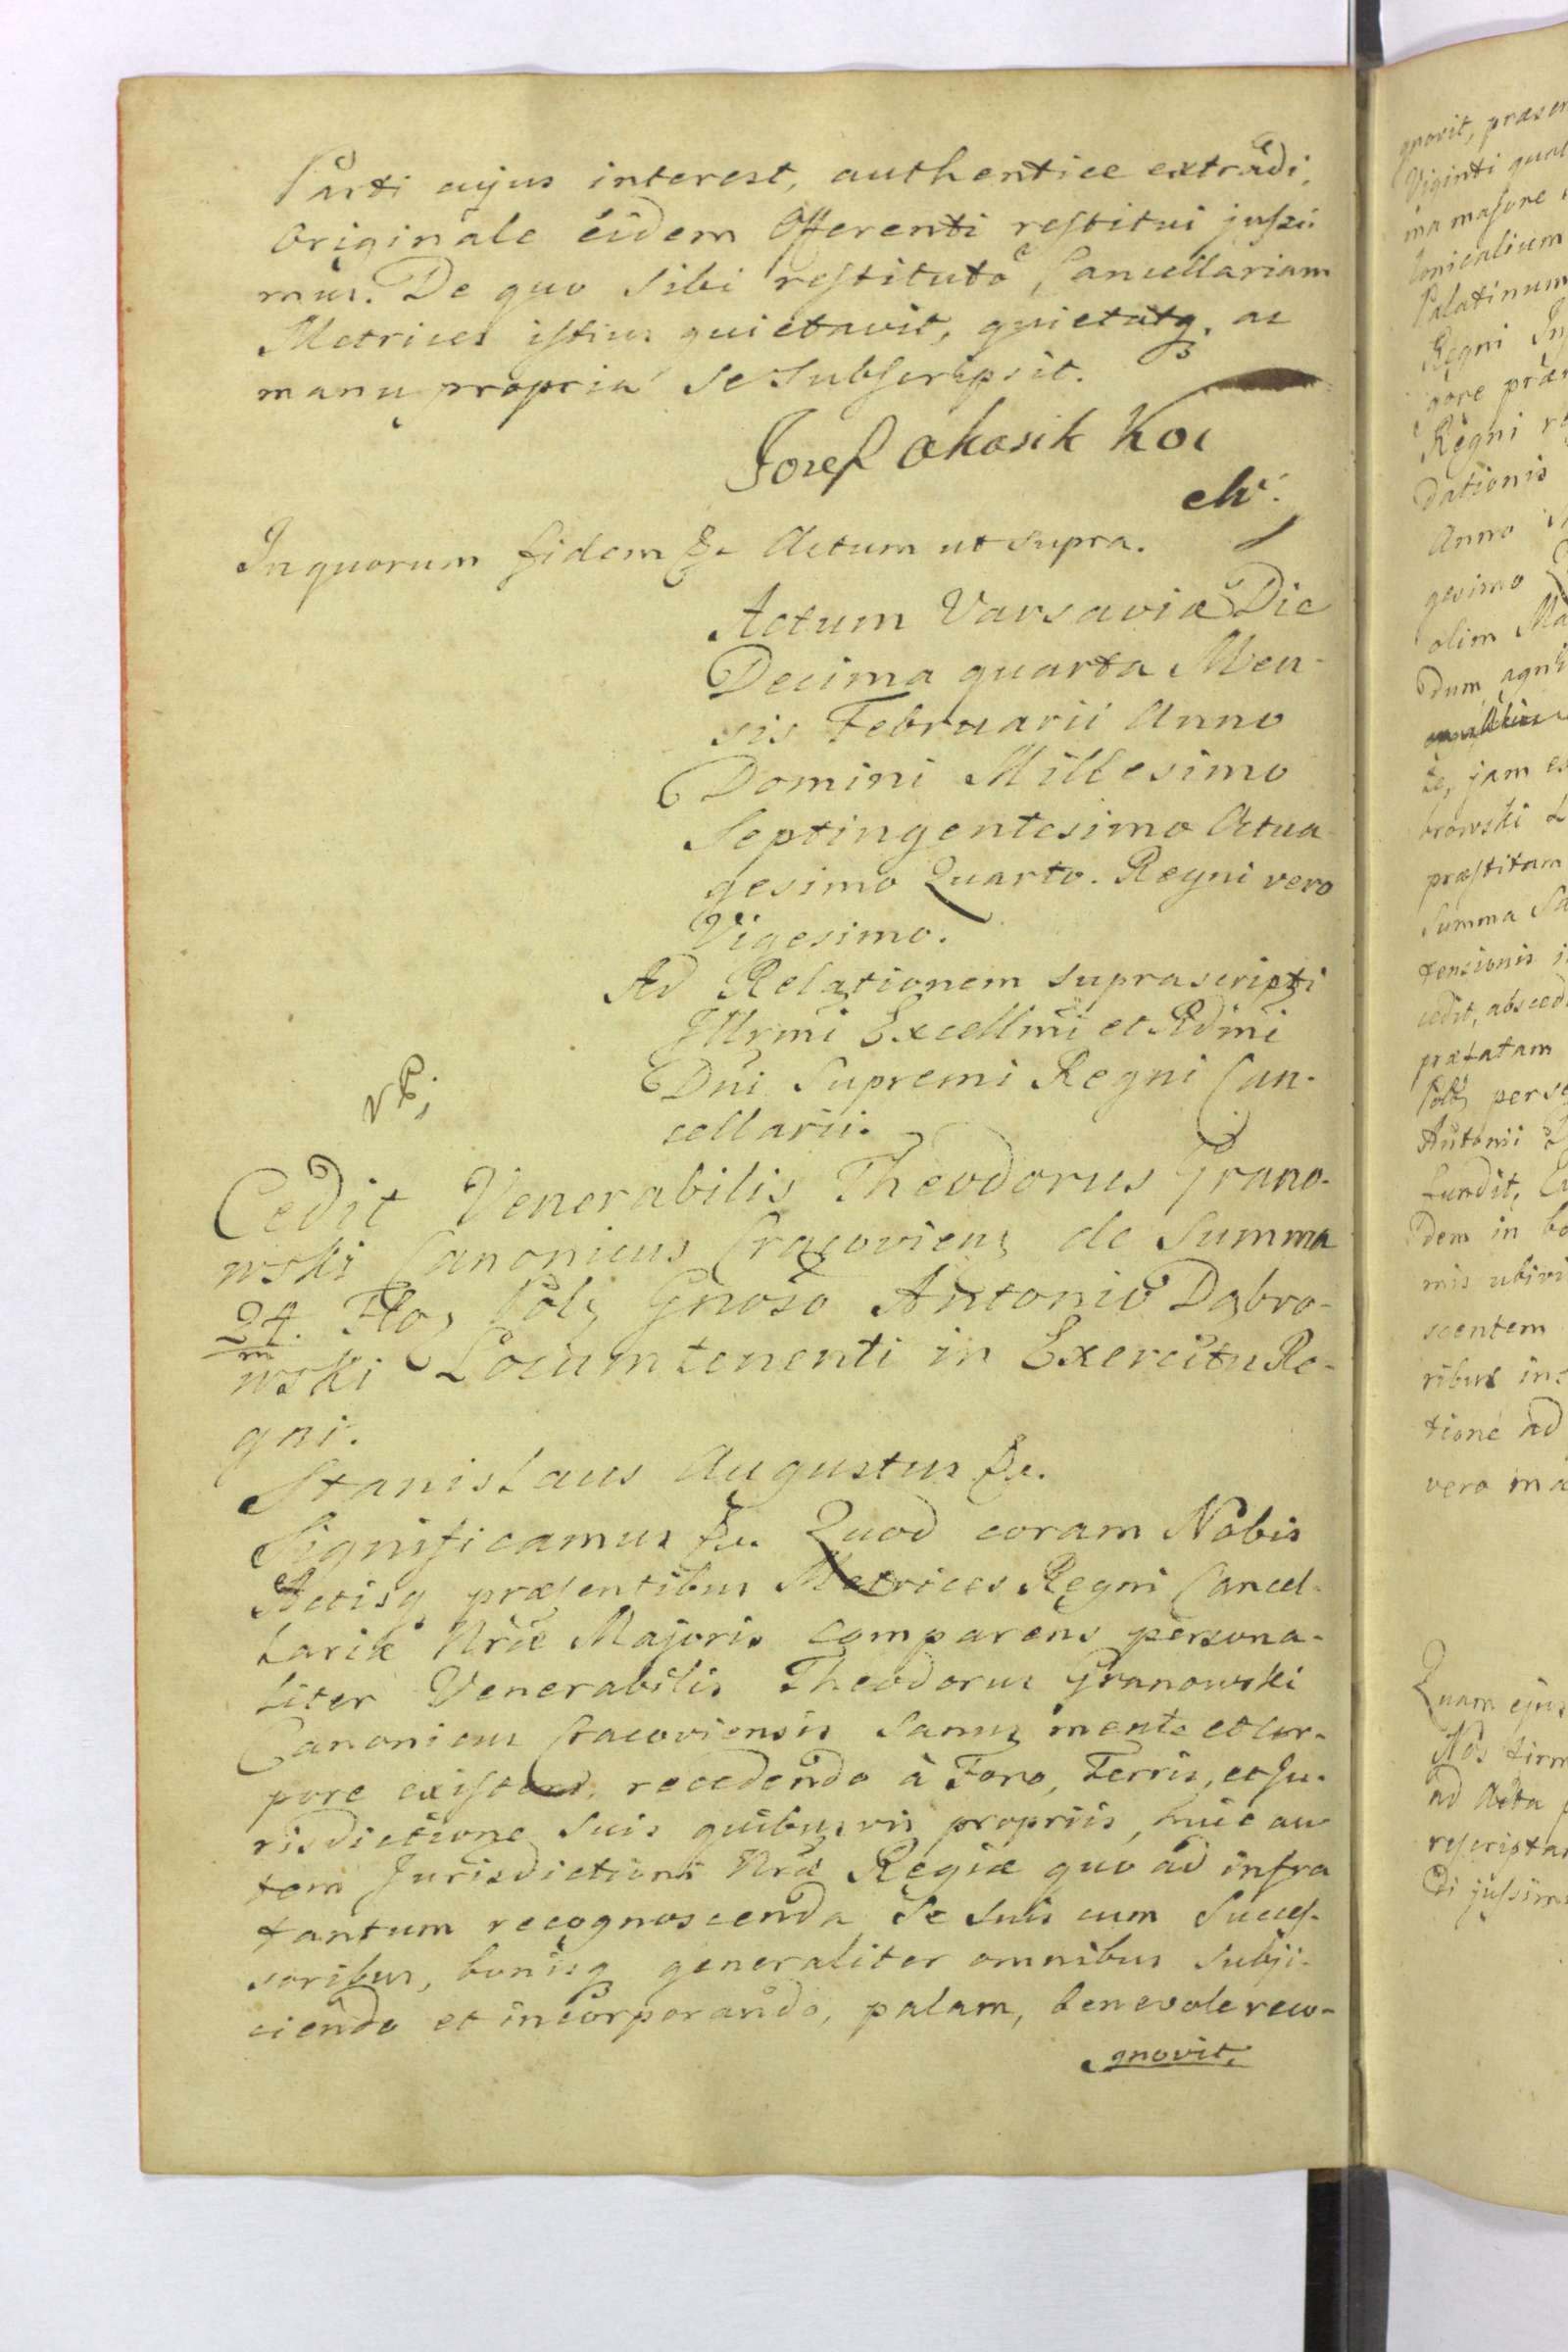 Parti cujus interest, authentice extradi,
Originale eidem Offerenti restitui jussi-
mus. De quo sibi restituto, Cancellariam
Metrices istius quietavit, quietatq, ac
manu propria se subscripsit.
Jozef
In quorum fidem &c Actum ut supra.
Actum Varsaviæ Die
Decima quarta Men-
sis Februarii Anno
Domini Millesimo
Septingentesimo Octua-
gesimo Quarto. Regni vero
Vigesimo.
Ad Relationem suprascripti
Illrmi Excellmi et Rdmi
Dni Supremi Regni Can-
cellarii.
Cedit Venerabilis Theodorus Grano-
wski Canonicus Cracoviens de Summa
24. Flo, Pol, Gnoso Antonio Dąbro-
m
wski Locumtenenti in Exercitu Re-
gni.
Stanislaus Augustus &c.
Significamus &c. Quod coram Nobis
Actisq præsentibus Metrices Regni Cancel-
lariæ Nræ Majoris comparens persona-
liter Venerabilis Theodorus Granowski
Canonicus Cracoviensis sanus mente et cor-
pore existens, recedendo à Foro, Terris, et Ju-
risdictione suis quibusvis propriis, huic au
tem Jurisdictioni Nræ Regiæ quo ad infra
tantum recognoscenda se suis cum Succes-
soribus, bonisq generaliter omnibus subji-
ciendo et incorporando, palam, benevole reco-
gnovit,
gnovit, præsen
Viginti quat
Palatinum
Regni
Regni
dationis
Anno
gesimo
olim Ma
dum
te, jam es
browski L
præstitam
Summa Sa
tensionis i
cedit, absced
prætatam
Antonii
fundit,
dem in bo
mis ubivi
scentem
ribus
tione ad
vero in
Quam ejus
Nos firm
ad Acta
rescripta
di jussim